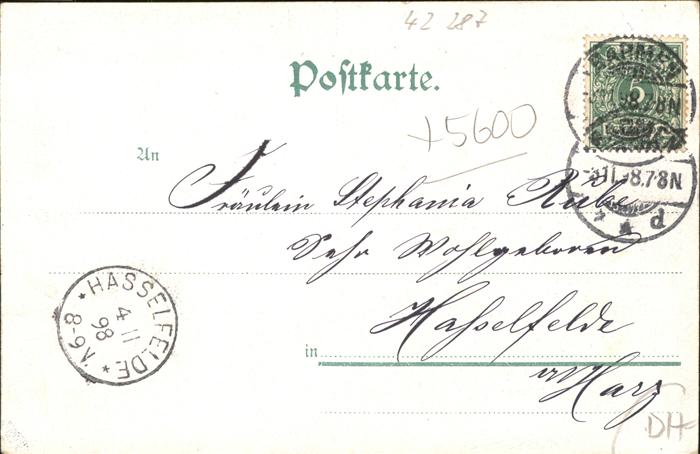 42 287
Postkarte.
BARMEN
5
-3.11.98.7-8N
d
+5600
An
Fräulein Stephania Rübe
Sehr Wohlgeboren
HASSELFELDE
4 11
98
8-9V.
Hasselfelde
in
Harz
DH